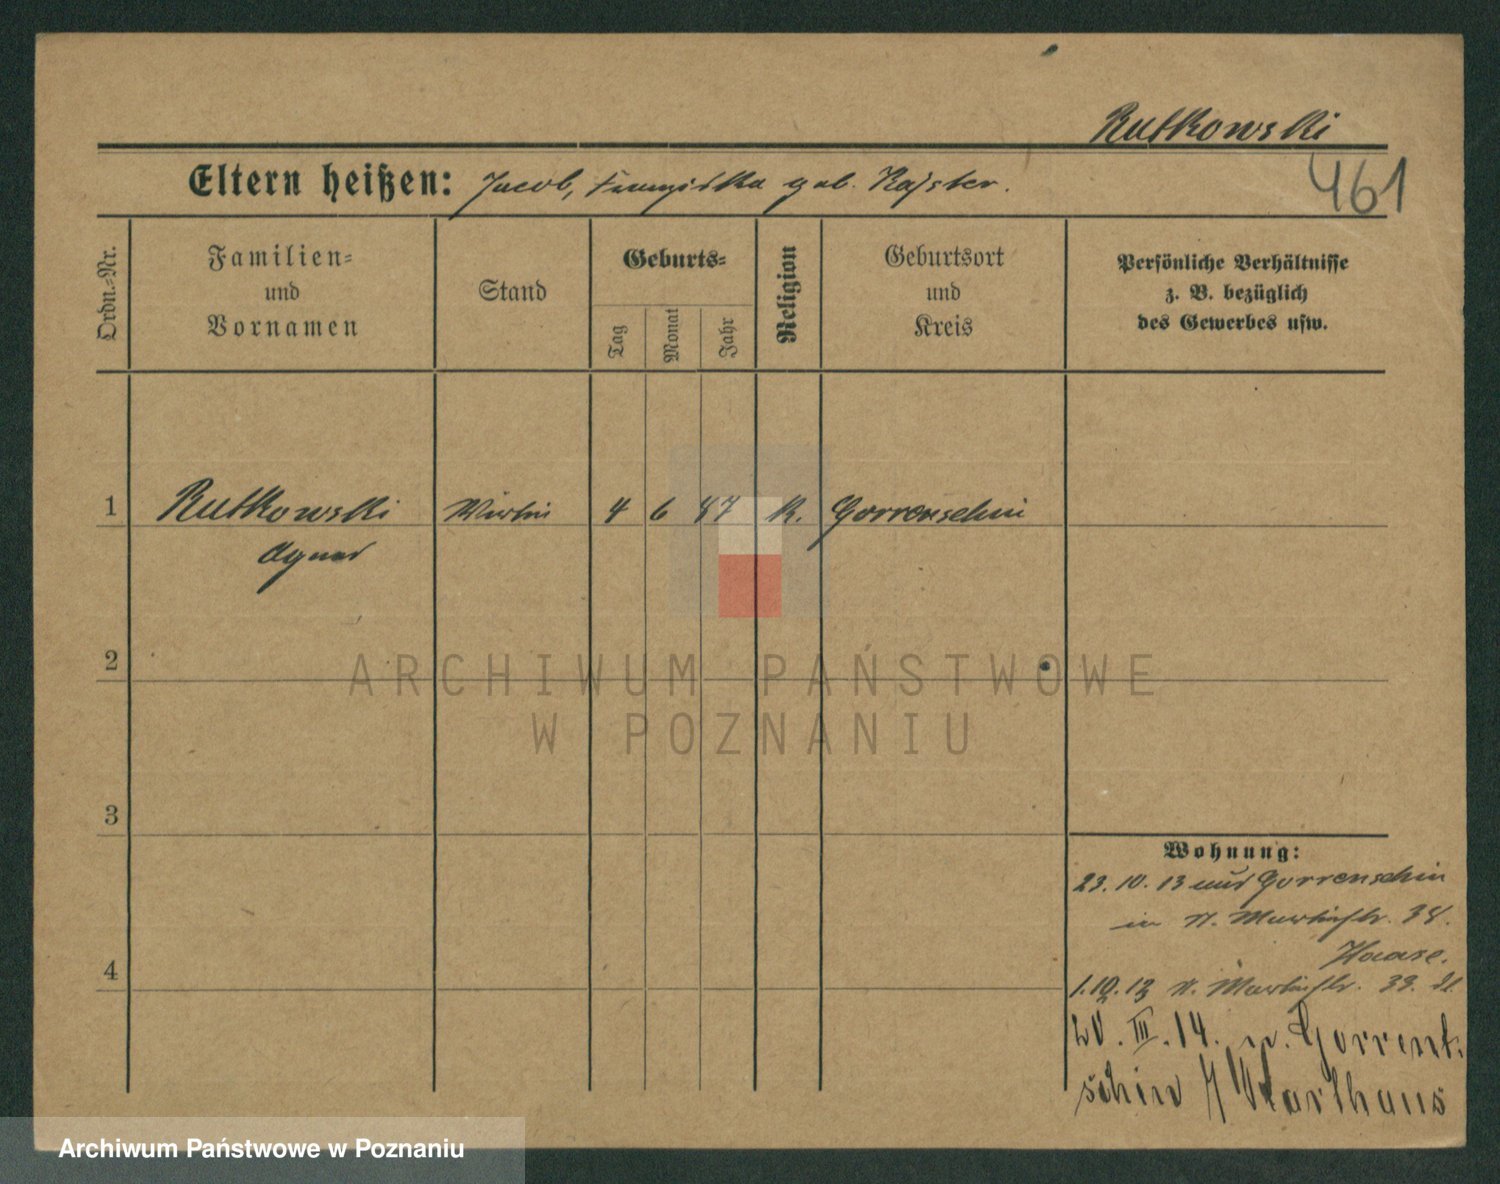 Rutkowski
461
Eltern heißen: Jacob, Franziska geb. Kajster.
Ordn.-Nr.
Familien-
und
Vornamen
Stand
Geburts-
Tag
Monat
Jahr
Religion
Geburtsort
und
Kreis
Persönliche Verhältnisse
z. B. bezüglich
des Gewerbes usw.
1 Rutkowski Wirtin 4 6 87 K. Gorrenschin
Agnes
2
3
4
Wohnung:
23. 10. 13 aus Gorrenschin
in St. Martinstr. 38.
Haase.
St. Martinstr. 33.
20. III. 14. n. Gorrent-
schin Warthaus
ARCHIWUM PAŃSTWOWE
W POZNANIU
Archiwum Państwowe w Poznaniu